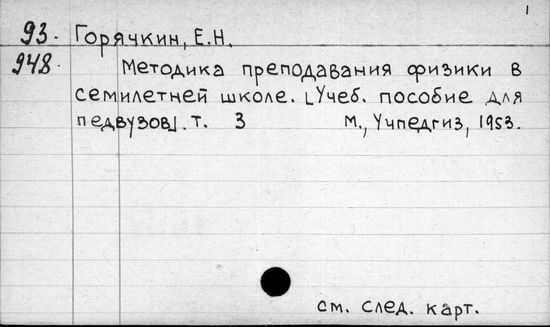 1
93. Горячкин, Е.Н.
948. Методика преподавания физики в
семилетней школе. [Учеб. пособие для
педвузов]. т. 3 М., Учпедгиз, 1953.
см. след. карт.